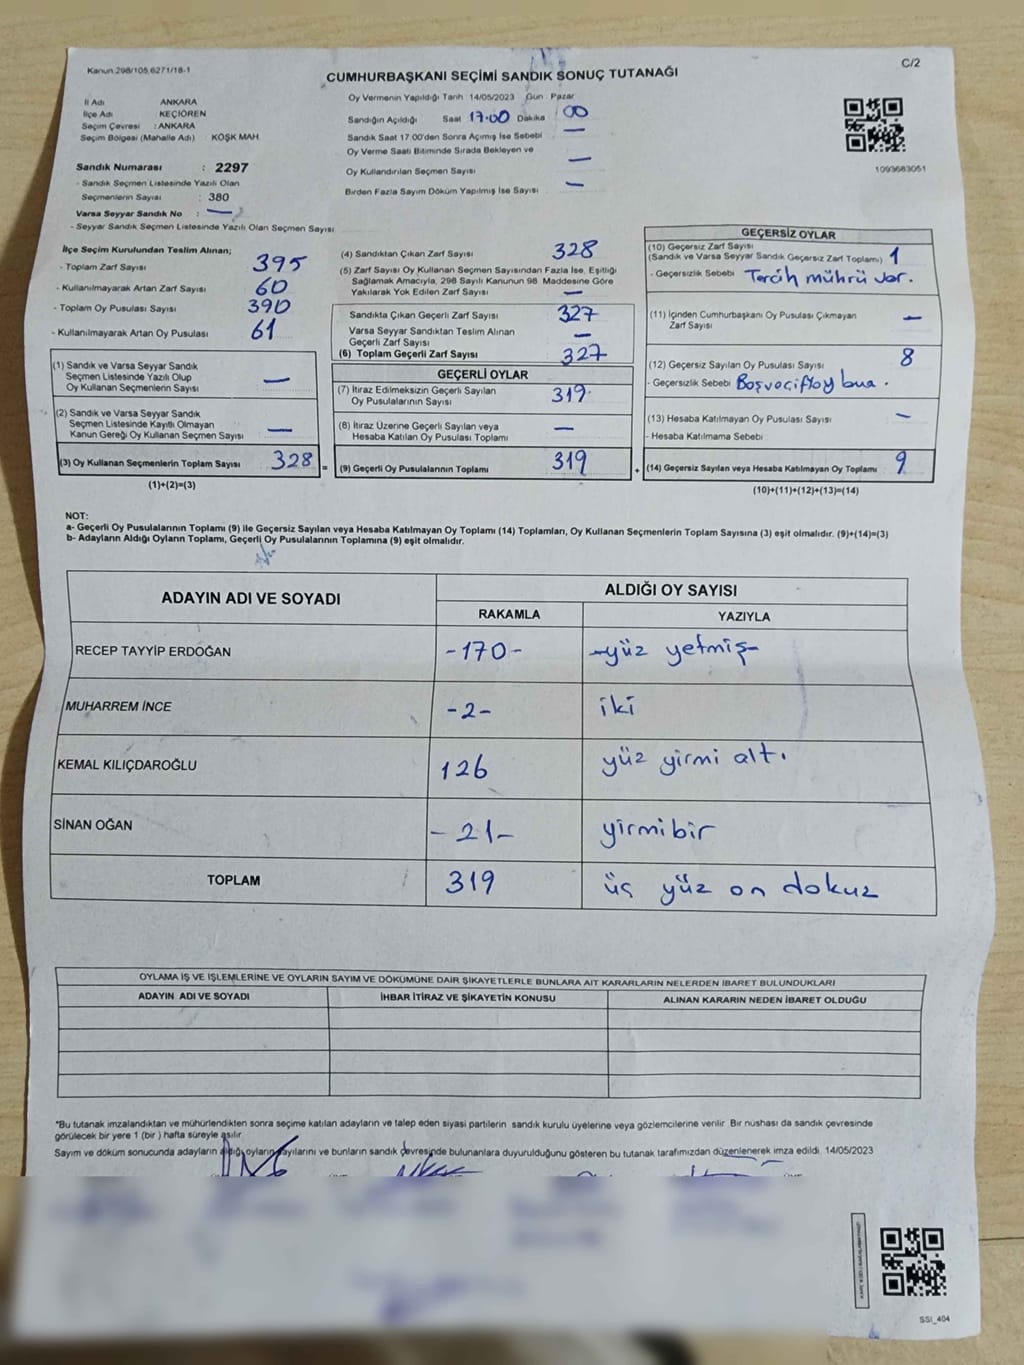 Kanun:298/105,6271/18-1
C/2
CUMHURBAŞKANI SEÇİMİ SANDIK SONUÇ TUTANAĞI
İl Adı ANKARA
İlçe Adı KEÇİÖREN
Seçim Çevresi : ANKARA
Seçim Bölgesi (Mahalle Adı) KÖŞK MAH.
Sandık Numarası : 2297
- Sandık Seçmen Listesinde Yazılı Olan
Seçmenlerin Sayısı : 380
Varsa Seyyar Sandık No : —
- Seyyar Sandık Seçmen Listesinde Yazılı Olan Seçmen Sayısı
Oy Vermenin Yapıldığı Tarih 14/05/2023 Gün : Pazar
Sandığın Açıldığı Saat 17.00 Dakika 00
Sandık Saat 17.00'den Sonra Açımış İse Sebebi —
Oy Verme Saati Bitiminde Sırada Bekleyen ve
Oy Kullandırılan Seçmen Sayısı —
Birden Fazla Sayım Döküm Yapılmış İse Sayısı —
1093683051
İlçe Seçim Kurulundan Teslim Alınan;
- Toplam Zarf Sayısı 395
- Kullanılmayarak Artan Zarf Sayısı 60
- Toplam Oy Pusulası Sayısı 390
- Kullanılmayarak Artan Oy Pusulası 61
(1) Sandık ve Varsa Seyyar Sandık
Seçmen Listesinde Yazılı Olup
Oy Kullanan Seçmenlerin Sayısı —
(2) Sandık ve Varsa Seyyar Sandık
Seçmen Listesinde Kayıtlı Olmayan
Kanun Gereği Oy Kullanan Seçmen Sayısı —
(3) Oy Kullanan Seçmenlerin Toplam Sayısı 328 =
(1)+(2)=(3)
(4) Sandıktan Çıkan Zarf Sayısı 328
(5) Zarf Sayısı Oy Kullanan Seçmen Sayısından Fazla İse, Eşitliği
Sağlamak Amacıyla, 298 Sayılı Kanunun 98. Maddesine Göre
Yakılarak Yok Edilen Zarf Sayısı —
Sandıkta Çıkan Geçerli Zarf Sayısı 327
Varsa Seyyar Sandıktan Teslim Alınan
Geçerli Zarf Sayısı —
(6) Toplam Geçerli Zarf Sayısı 327
GEÇERLİ OYLAR
(7) İtiraz Edilmeksizin Geçerli Sayılan
Oy Pusulalarının Sayısı 319
(8) İtiraz Üzerine Geçerli Sayılan veya
Hesaba Katılan Oy Pusulası Toplamı —
(9) Geçerli Oy Pusulalarının Toplamı 319 +
GEÇERSİZ OYLAR
(10) Geçersiz Zarf Sayısı
(Sandık ve Varsa Seyyar Sandık Geçersiz Zarf Toplamı) 1
- Geçersizlik Sebebi Tercih mührü var.
(11) İçinden Cumhurbaşkanı Oy Pusulası Çıkmayan
Zarf Sayısı —
(12) Geçersiz Sayılan Oy Pusulası Sayısı 8
- Geçersizlik Sebebi
(13) Hesaba Katılmayan Oy Pusulası Sayısı —
- Hesaba Katılmama Sebebi
(14) Geçersiz Sayılan veya Hesaba Katılmayan Oy Toplamı 9
(10)+(11)+(12)+(13)=(14)
NOT:
a- Geçerli Oy Pusulalarının Toplamı (9) ile Geçersiz Sayılan veya Hesaba Katılmayan Oy Toplamı (14) Toplamları, Oy Kullanan Seçmenlerin Toplam Sayısına (3) eşit olmalıdır. (9)+(14)=(3)
b- Adayların Aldığı Oyların Toplamı, Geçerli Oy Pusulalarının Toplamına (9) eşit olmalıdır.
ADAYIN ADI VE SOYADI
ALDIĞI OY SAYISI
RAKAMLA YAZIYLA
RECEP TAYYİP ERDOĞAN -170- -yüz yetmiş-
MUHARREM İNCE -2- iki
KEMAL KILIÇDAROĞLU 126 yüz yirmi altı
SİNAN OĞAN -21- yirmibir
TOPLAM 319 üç yüz on dokuz
OYLAMA İŞ VE İŞLEMLERİNE VE OYLARIN SAYIM VE DÖKÜMÜNE DAİR ŞİKAYETLERLE BUNLARA AİT KARARLARIN NELERDEN İBARET BULUNDUKLARI
ADAYIN ADI VE SOYADI İHBAR İTİRAZ VE ŞİKAYETİN KONUSU ALINAN KARARIN NEDEN İBARET OLDUĞU
*Bu tutanak imzalandıktan ve mühürlendikten sonra seçime katılan adayların ve talep eden siyasi partilerin sandık kurulu üyelerine veya gözlemcilerine verilir. Bir nüshası da sandık çevresinde
görülecek bir yere 1 (bir ) hafta süreyle asılır.
Sayım ve döküm sonucunda adayların aldığı oyların sayılarını ve bunların sandık çevresinde bulunanlara duyurulduğunu gösteren bu tutanak tarafımızdan düzenlenerek imza edildi. 14/05/2023
SSI_404